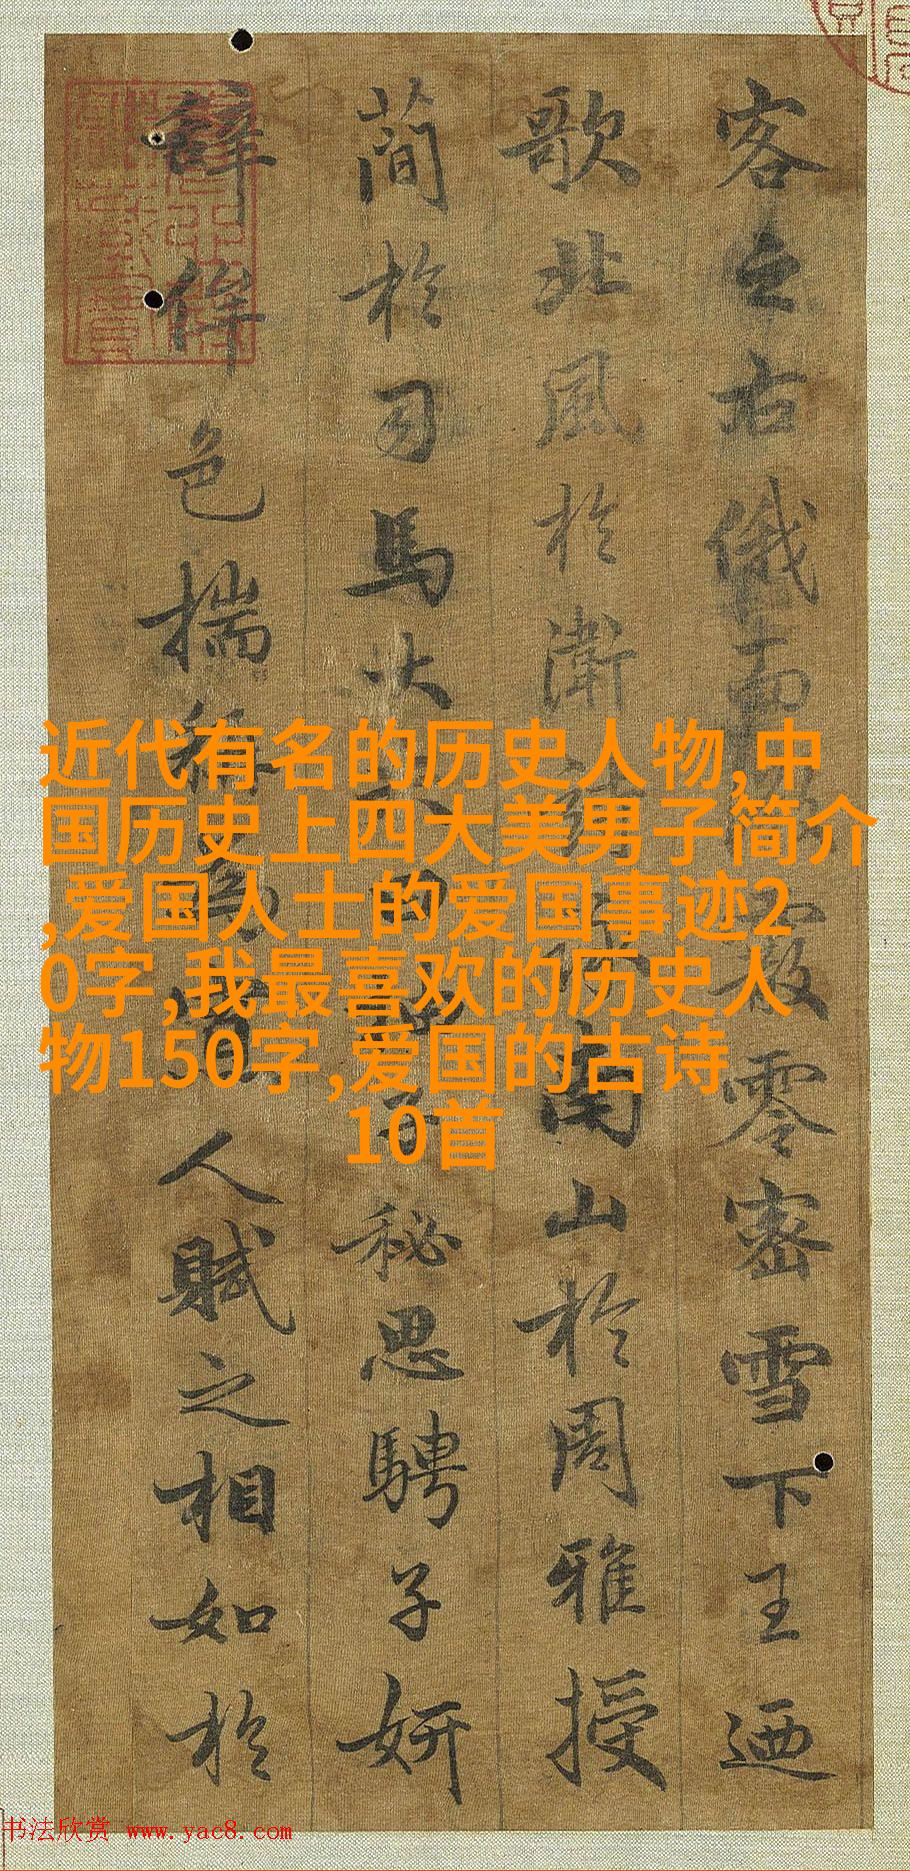 客之右俄而霰零密雪下王迺
歌北風於衛南山於周雅授
簡於司馬大曰子秘思騁子妍
辭侔色揣稱為人賦之相如於
近代有名的历史人物,中
国历史上四大美男子简介
,爱国人士的爱国事迹2
0字,我最喜欢的历史人
物150字,爱国的古诗
10首
书法欣赏 www.yac8.com